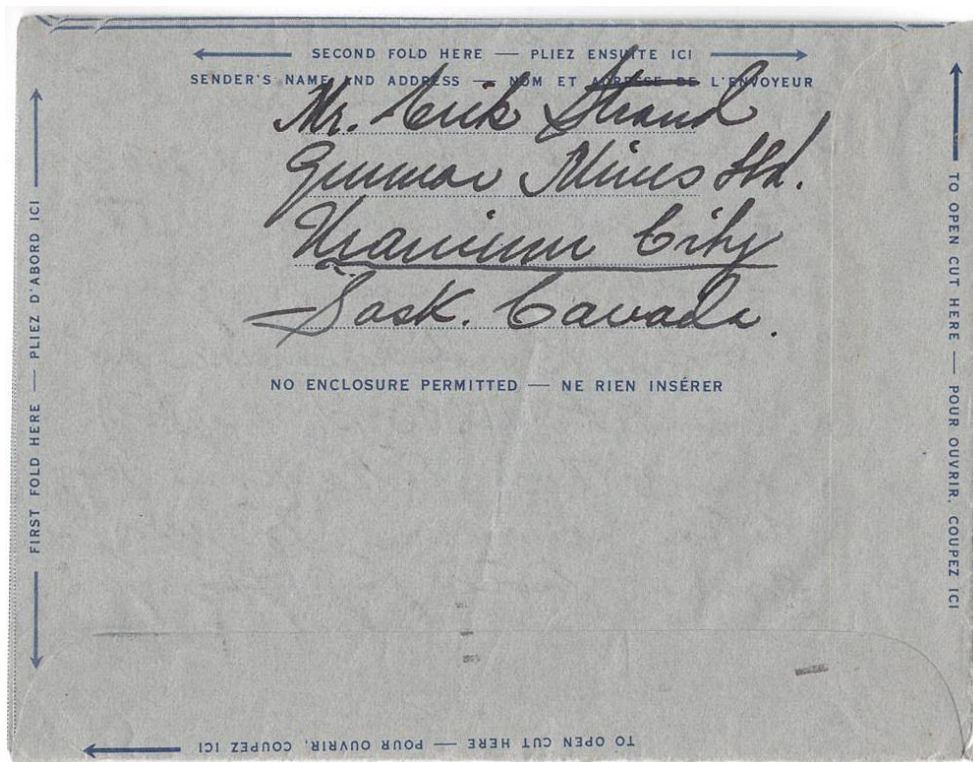 SECOND FOLD HERE — PLIEZ ENSUITE ICI
SENDER'S NAME AND ADDRESS — NOM ET ADRESSE DE L'ENVOYEUR
Mr. Erik Strand
Gunnar Mines Ltd.
Uranium City
Sask. Canada.
NO ENCLOSURE PERMITTED — NE RIEN INSÉRER
FIRST FOLD HERE — PLIEZ D'ABORD ICI
TO OPEN CUT HERE — POUR OUVRIR, COUPEZ ICI
TO OPEN CUT HERE — POUR OUVRIR, COUPEZ ICI